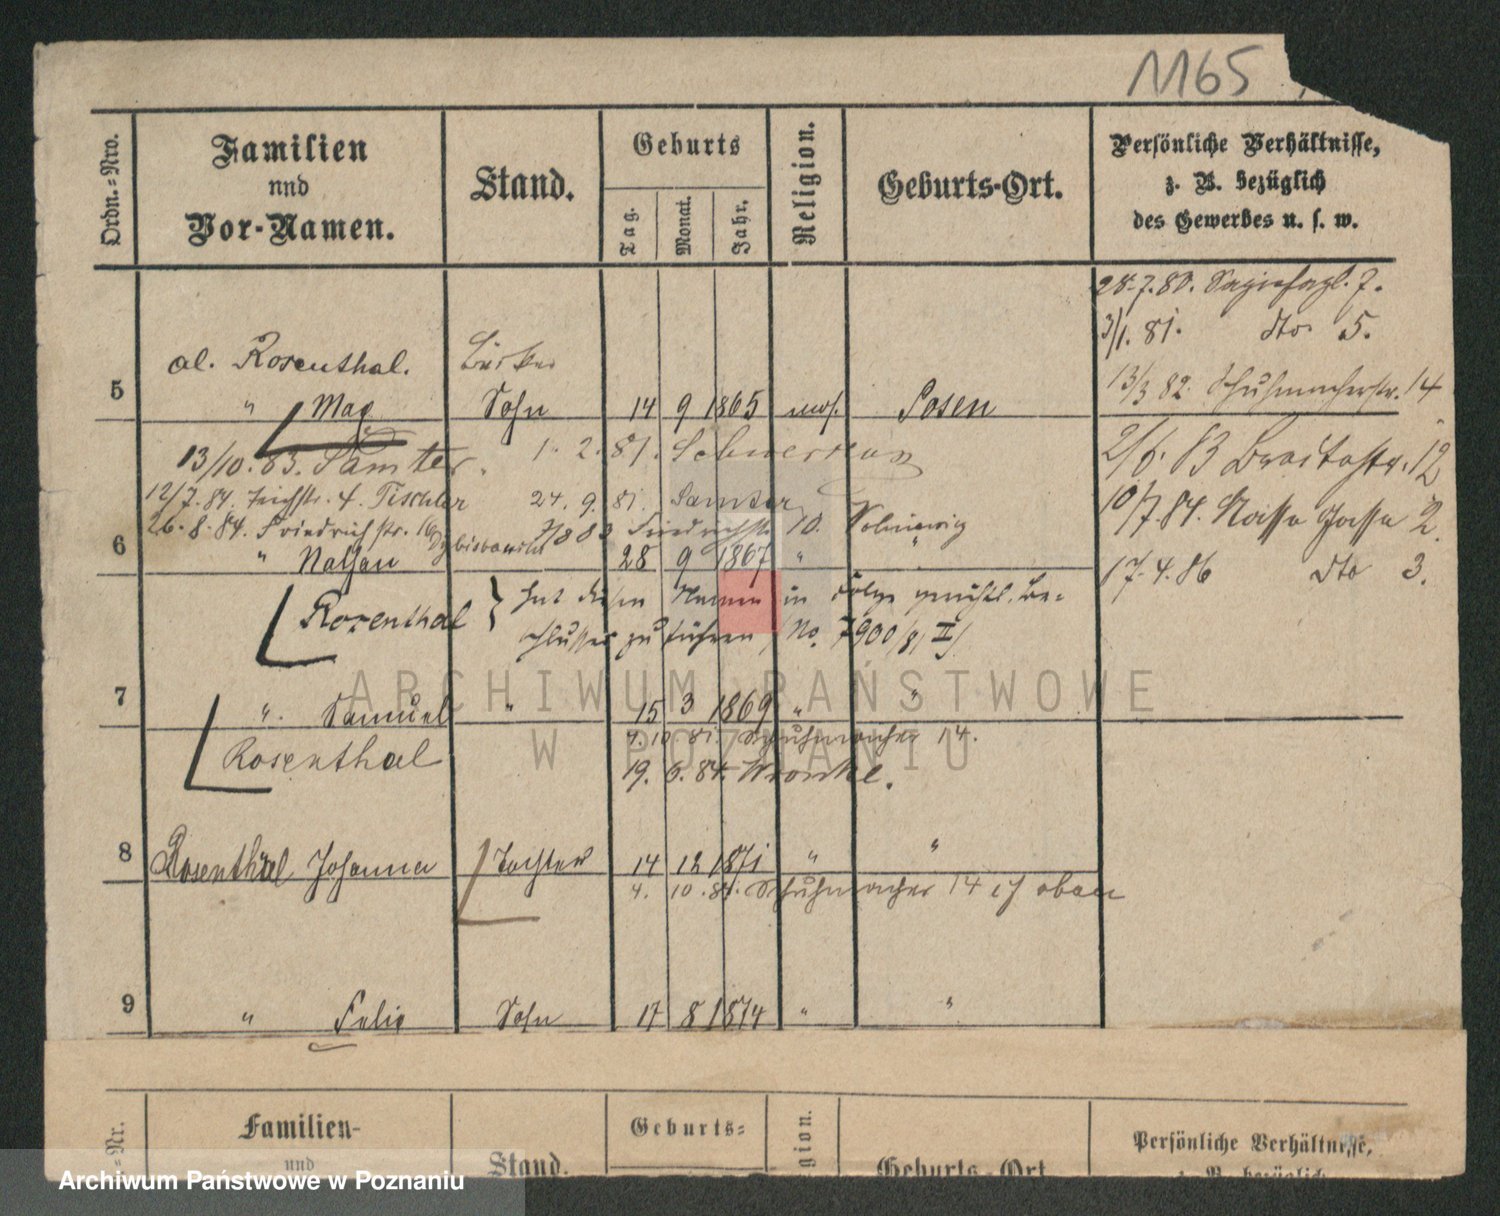 1165
Ordn.=Nro.
Familien
und
Vor-Namen.
Stand.
Geburts
Tag.
Monat.
Jahr.
Religion.
Geburts-Ort.
Persönliche Verhältnisse,
z. B. bezüglich
des Gewerbes u. s. w.
28.7.80. 7.
3/1. 81. dto 5.
13/3 82. Schuhmacherstr. 14
al. Rosenthal.
5 " Max Sohn 14 9 1865 mos. Posen
2/6. 83 Breitestr. 12
13/10. 83. Samter. 1. 2. 81. Schwersenz
10/7. 84. Nasse Gasse 2.
12/7. 84. Teichstr. 4. Tischler 24. 9. 81. Samter
26. 8. 84. Friedrichstr. 16 Friedrichstr. 10.
6 " Nathan 28 9 1867 " "
17. 4. 86 dto 3.
Rosenthal } hat diesen Namen in Folge gerichtl. Be=
schlusses zu führen / No. 7900/81 II /.
7 " Samuel " 15 3 1869 " "
4. 10 81. Schuhmacher 14.
Rosenthal
19. 6. 84. Wronke.
8 Rosenthal Johanna Tochter 14 12 1871 " "
4. 10. 81. Schuhmacher 14 oben
9 " Felix Sohn 17 8 1874 " "
ARCHIWUM PAŃSTWOWE
W POZNANIU
=Nr.
Familien-
und
Stand.
Geburts=
gion.
Geburts-Ort
Persönliche Verhältnisse,
z. B. bezüglich
Archiwum Państwowe w Poznaniu